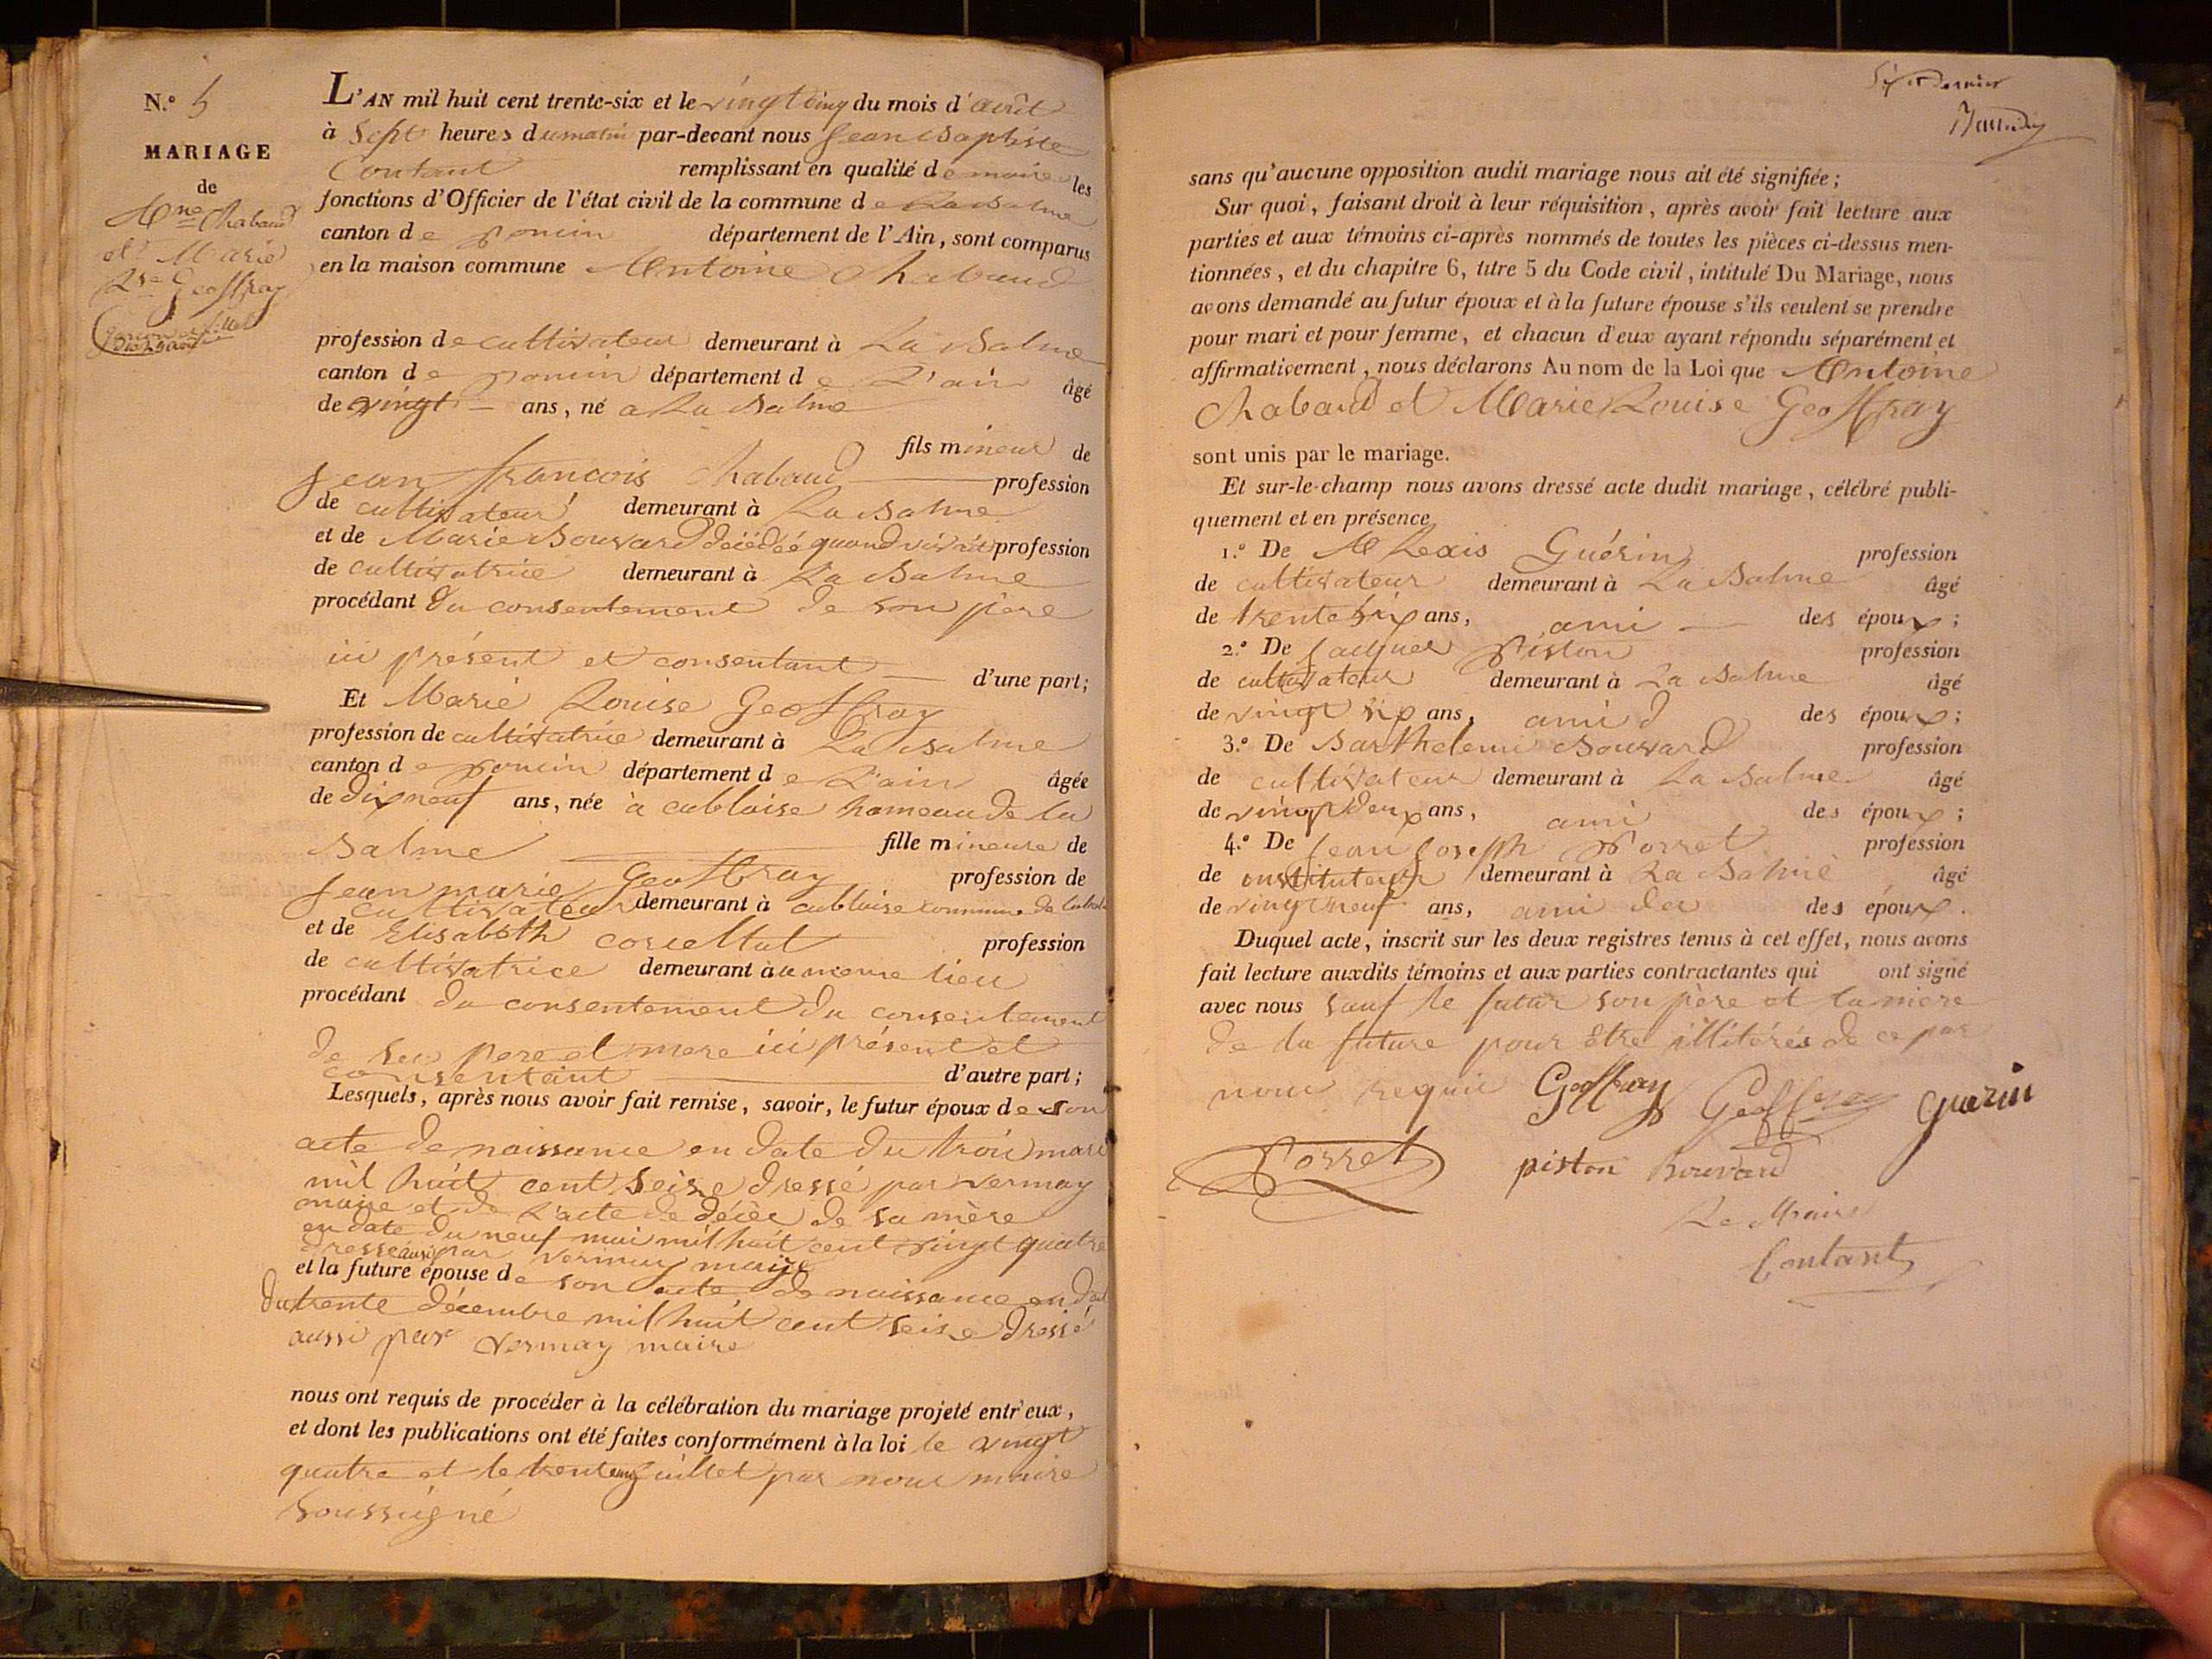 N.° 5
MARIAGE
de
Ane Chabaud
et Marie
Lse Geoffray
L'AN mil huit cent trente-six et le vingt cinq du mois d'août
à Sept heures du matin par-devant nous Jean Baptiste
Contant remplissant en qualité de maire les
fonctions d'Officier de l'état civil de la commune de La Balme
canton de poncin département de l'Ain, sont comparus
en la maison commune Antoine Chabaud
profession de cultivateur demeurant à La Balme
canton de poncin département de L'ain âgé
de vingt ans, né a La Balme
fils mineur de
Jean francois Chabaud profession
de cultivateur demeurant à La Balme
et de Marie Bouvard décédée quand vivait profession
de cultivatrice demeurant à La Balme
procédant Du consentement de son père
ici présent et consentant d'une part;
Et Marie Louise Geoffray
profession de cultivatrice demeurant à La Balme
canton de poncin département de L'ain âgée
de dix neuf ans, née à cubloise hameau de la
Balme fille mineure de
Jean marie Geoffray profession de
cultivateur demeurant à cubloise commune de labalme
et de Elisabeth profession
de cultivatrice demeurant au meme lieu
procédant du consentement du consentement
de ses pere et mere ici présent et
consentant d'autre part;
Lesquels, après nous avoir fait remise, savoir, le futur époux de son
acte de naissance en date du trois mars
mil huit cent seise dressé par vermay
maire et de L'acte de décès de sa mère
en date du neuf mai mil huit cent vingt quatre
dressé aussi par vermay maire
et la future épouse de son acte de naissance en date
du trente décembre mil huit cent seise dressé
aussi par vermay maire
nous ont requis de procéder à la célébration du mariage projeté entr'eux,
et dont les publications ont été faites conformément à la loi le vingt
quatre et le trente juillet par nous maire
Soussigné
Six et dernier
sans qu'aucune opposition audit mariage nous ait été signifiée;
Sur quoi, faisant droit à leur réquisition, après avoir fait lecture aux
parties et aux témoins ci-après nommés de toutes les pièces ci-dessus men-
tionnées, et du chapitre 6, titre 5 du Code civil, intitulé Du Mariage, nous
avons demandé au futur époux et à la future épouse s'ils veulent se prendre
pour mari et pour femme, et chacun d'eux ayant répondu séparément et
affirmativement, nous déclarons Au nom de la Loi que Antoine
Chabaud et Marie Louise Geoffray
sont unis par le mariage.
Et sur-le-champ nous avons dressé acte dudit mariage, célébré publi-
quement et en présence
1.° De Alexis Guérin profession
de cultivateur demeurant à La Balme âgé
de trente six ans, ami des époux;
2.° De Jacques Piston profession
de cultivateur demeurant à La Balme âgé
de vingt six ans, ami des époux;
3.° De Barthelemi Bouvard profession
de cultivateur demeurant à La Balme âgé
de vingt deux ans, ami des époux;
4.° De Jean Joseph Porret profession
de instituteur demeurant à La Balme âgé
de vingt neuf ans, ami des des époux.
Duquel acte, inscrit sur les deux registres tenus à cet effet, nous avons
fait lecture auxdits témoins et aux parties contractantes qui ont signé
avec nous sauf le futur son père et la mere
de la future pour être illitérés de ce par
nous requis Geoffray Geoffray guerin
Porret piston Bouvard
Le Maire
Contant